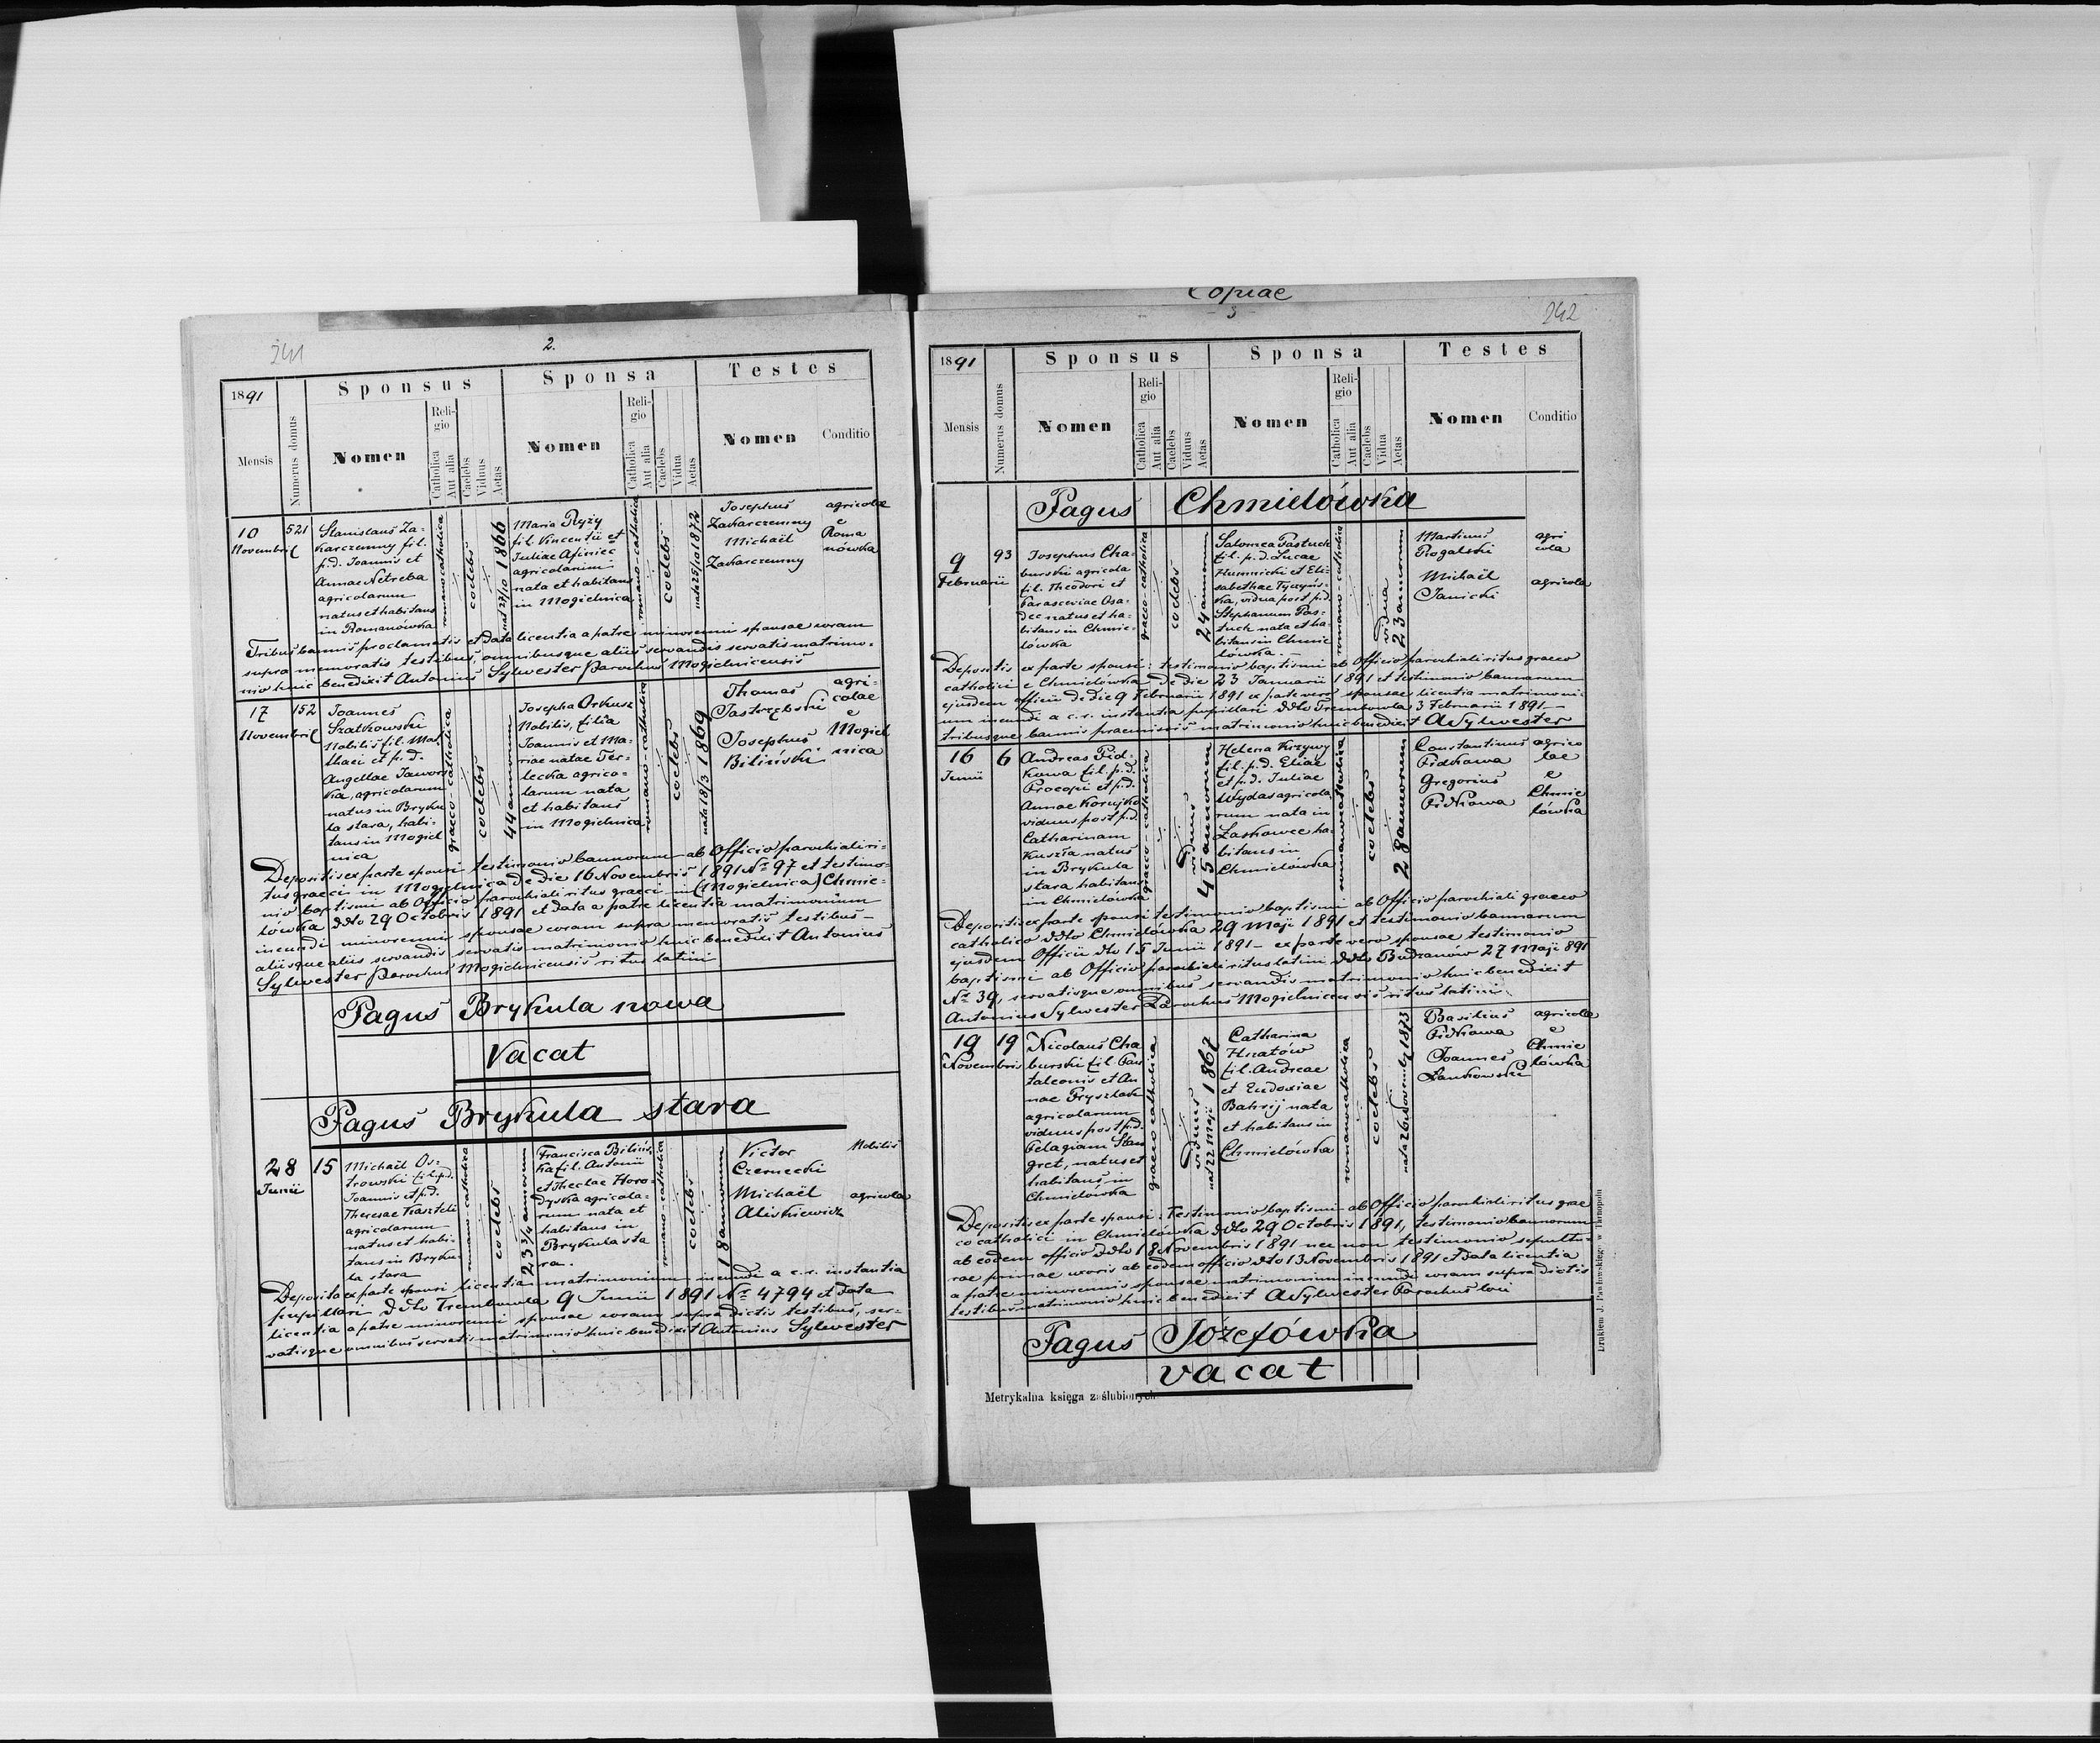 241
2.
1891
Sponsus
Sponsa
Testes
Mensis
Numerus domus
Nomen
Religio
Catholica
Aut alia
Caelebs
Viduus
Aetas
Nomen
Religio
Catholica
Aut alia
Caelebs
Vidua
Aetas
Nomen
Conditio
10
Novembris
521
Stanislaus Za-
karczemny fil.
p.d. Joannis et
Annae Netreba
agricolarum
natus et habitans
in Romanówka
romano catholica
coelebs
nat 23/10 1866
Maria Ryży
fil. Vincentii et
Juliae
agricolarum
nata et habitans
in Mogielnica
romano-catholica
coelebs
nata 25/10 1872
Josephus
Zakarczemny
Michaël
Zakarczemny
agricolae
e
Roma
nówka
Tribus bannis proclamatis et data licentia a patre minorenni sponsae coram
supra memoratis testibus, omnibusque aliis servandis servatis matrimo-
nio huic benedixit Antonius Sylwester Parochus Mogielnicensis
17
Novembris
152
Joannes
Szatkowski
Nobilis fil. Mat
thaei et p.d.
Angellae Jawors
ka, agricolarum
natus in Bryku
la stara, habi-
tans in Mogiel
nica
graeco-catholica
coelebs
44 annorum
Josepha Orkusz
Nobilis, filia
Joannis et Ma-
riae natae Ter-
lecka agrico-
larum nata
et habitans
in Mogielnica
romano-catholica
coelebs
nata 18/3 1869
Thomas
Jastrzębski
Josephus
Biliński
agri-
colae
e
Mogiel
nica
Depositis ex parte sponsi testimonio bannorum ab Officio parochiali ri-
tus graeci in Mogielnica de die 16 Novembris 1891 Nr 97 et testimo-
nio baptismi ab Officio parochiali ritus graeci in (Mogielnica) Chmie-
lówka ddto 29 Octobris 1891 et data a patre licentia matrimonium
ineundi minorennis sponsae coram supra memoratis testibus -
aliisque aliis servandis servatis matrimonio huic benedixit Antonius
Sylwester Parochus Mogielnicensis ritus latini
Pagus Brykula nowa
Vacat
Pagus Brykula stara
28
Junii
15
Michaël Os-
trowski fil. p.d.
Joannis et p.d.
Theresae
agricolarum
natus et habi-
tans in Bryku-
la stara
romano-catholica
coelebs
23 3/4 annorum
Francisca Bilińs
ka fil. Antonii
et Theclae Horo-
dyska agricola-
rum nata et
habitans in
Brykula sta
ra.
romano-catholica
coelebs
18 annorum
Victor
Czernecki
Michaël
Aliskiewicz
Nobilis
agricola
Deposita ex parte sponsi licentia matrimonium ineundi a c.r. instantia
pupillari ddto Trembowla 9 Junii 1891 Nr 4794 et data
licentia a patre minorenni sponsae coram supra dictis testibus, ser-
vatisque omnibus servatis matrimonio huic benedixit Antonius Sylwester
Copiae
3
242
1891
Sponsus
Sponsa
Testes
Mensis
Numerus domus
Nomen
Religio
Catholica
Aut alia
Caelebs
Viduus
Aetas
Nomen
Religio
Catholica
Aut alia
Caelebs
Vidua
Aetas
Nomen
Conditio
Pagus Chmielówka
9
Februarii
93
Josephus Cha-
burski agricola
fil. Theodori et
Parasceviae Osa-
dec natus et ha-
bitans in Chmie-
lówka
graeco-catholica
coelebs
24 annorum
Salomea Pastuch
fil. p.d. Lucae
Humnicki et Eli-
sabethae Tyczyńs-
ka, vidua post p.d.
Stephanum Pas-
tuch nata et ha-
bitans in Chmie
lówka.-
romano-catholica
vidua
23 annorum
Martinus
Rogalski
Michaël
Janicki
agri
cola
agricola
Depositis ex parte sponsi: testimonio baptismi ab Officio parochiali ritus graeco
catholici e Chmielówka de die 23 Januarii 1891 et testimonio bannorum
ejusdem officii de die 9 Februarii 1891 ex parte vero sponsae licentia matrimoni-
um ineundi a c.r. instantia pupillari ddto Trembowla 3 Februarii 1891 -
tribusque bannis praemissis matrimonio huic benedixit A Sylwester
16
Junii
6
Andreas Pid-
kowa fil. p.d.
Procopi et p.d.
Annae
viduus post p.d.
Catharinam
natus
in Brykula
stara habitans
in Chmielówka
graeco-catholica
viduus
45 annorum
Helena Krzywy
fil. p.d. Eliae
et p.d. Juliae
Wydas agricola
rum nata in
Laskowce ha-
bitans in
Chmielówka
romano catholica
coelebs
28 annorum
Constantinus
Pidkowa
Gregorius
Pidkowa
agrico
lae
e
Chmie
lówka
Depositis ex parte sponsi testimonio baptismi ab Officio parochiali graeco
catholico ddto Chmielówka 29 Maji 1891 et testimonio bannorum
ejusdem Officii dto 15 Junii 1891 - ex parte vero sponsae testimonio
baptismi ab Officio parochiali ritus latini ddto Budzanów 27 Maji 891
Nr 39, servatisque omnibus servandis matrimonio huic benedixit
Antonius Sylwester Parochus Mogielnicensis ritus latini
19
Novembris
19
Nicolaus Cha
burski fil. Pan
taleonis et An
nae
agricolarum
viduus post p.d.
Pelagiam
natus et
habitans in
Chmielówka
graeco catholica
viduus
nat 22 Maji 1867
Catharina
Hnatów
fil. Andreae
et Eudoxiae
Bahrij nata
et habitans in
Chmielówka
romano catholica
coelebs
nata 26 Novemb 1873
Basilius
Pidkowa
Joannes
Zankowski
agricolae
e
Chmie
lówka
Depositis ex parte sponsi: Testimonio baptismi ab Officio parochiali ritus grae
co catholici in Chmielówka ddto 29 Octobris 1891, testimonio bannorum
ab eodem officio ddto 18 Novembris 1891 nec non testimonio sepultu-
rae primae uxoris ab eodem officio dto 13 Novembris 1891 et data licentia
a patre minorennis sponsae matrimonium ineundi coram supra dictis
testibus matrimonio huic benedixit A Sylwester Parochus loci
Pagus Józefówka
vacat
Metrykalna księga zaślubionych
Drukiem J. Pawłowskiego w Tarnopolu